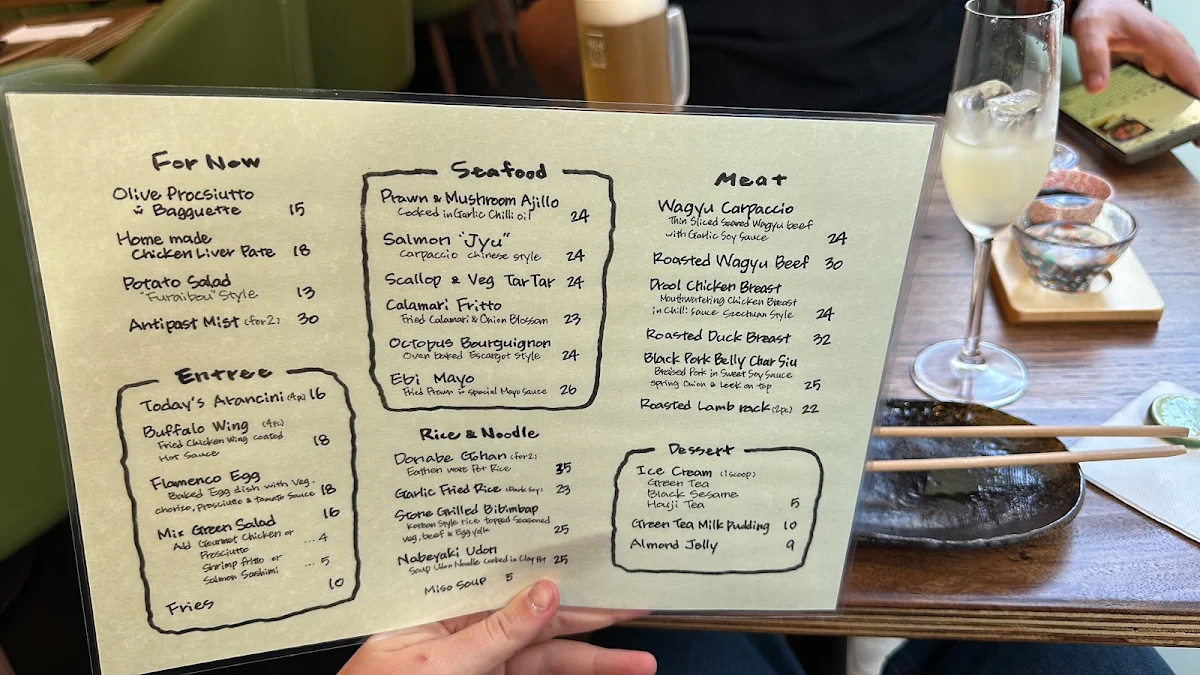 For Now
Olive Procsiutto
w Bagguette 15
Home made
Chicken Liver Pate 18
Potato Salad
"Furaibou" Style 13
Antipast Mist (for 2) 30
Entree
Today's Arancini (4pc) 16
Buffalo Wing (4pc)
Fried Chicken Wing coated
Hot Sauce 18
Flamenco Egg
Baked Egg dish with Veg.
chorizo, Prosciutto & tomato sauce 18
Mix Green Salad 16
Add Gourmet Chicken or
Prosciutto ... 4
Shrimp fritto or
Salmon Sashimi ... 5
Fries 10
Seafood
Prawn & Mushroom Ajillo
Cooked in Garlic Chilli oil 24
Salmon "Jyu"
Carpaccio chinese style 24
Scallop & Veg TarTar 24
Calamari Fritto
Fried Calamari & Onion Blossom 23
Octopus Bourguignon
Oven baked Escargot Style 24
Ebi Mayo
Fried Prawn w special Mayo Sauce 26
Rice & Noodle
Donabe Gohan (for 2)
Eathen ware Pot Rice 35
Garlic Fried Rice 23
Stone Grilled Bibimbap
Korean Style rice topped Seasoned
veg, beef & Egg yolk 25
Nabeyaki Udon
Soup Udon Noodle Cooked in Clay Pot 25
Miso Soup 5
Meat
Wagyu Carpaccio
Thin Sliced Seared Wagyu beef
with Garlic Soy Sauce 24
Roasted Wagyu Beef 30
Drool Chicken Breast
Mouthwatering Chicken Breast
in Chilli sauce Szectuan Style 24
Roasted Duck Breast 32
Black Pork Belly Char Siu
Braised Pork in Sweet Soy Sauce
spring Onion & Leek on top 25
Roasted Lamb rack (2pc) 22
Dessert
Ice Cream (1 scoop)
Green Tea
Black Sesame
Houji Tea 5
Green Tea Milk Pudding 10
Almond Jelly 9